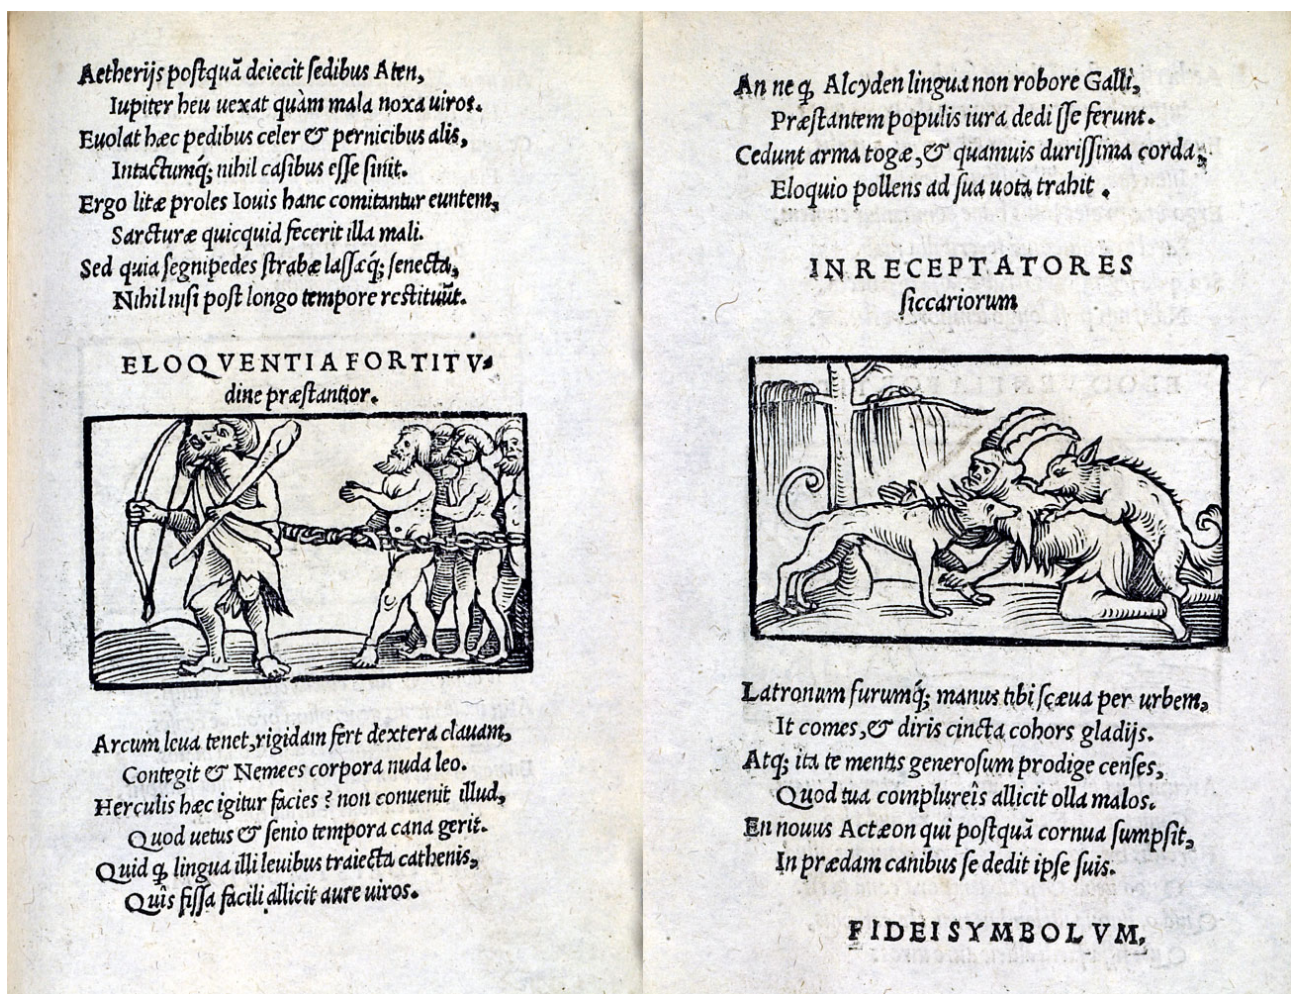 Aetherijs postquã deiecit sedibus Aten,
Iupiter heu uexat quàm mala noxa uiros.
Euolat hæc pedibus celer & pernicibus alis,
Intactumq́; nihil casibus esse sinit.
Ergo litæ proles Iouis hanc comitantur euntem,
Sarcturæ quicquid fecerit illa mali.
Sed quia segnipedes strabæ lassæq́; senecta,
Nihil nisi post longo tempore restituũt.
ELOQVENTIA FORTITV-
dine præstantior.
Arcum leua tenet, rigidam fert dextera clauam,
Contegit & Nemees corpora nuda leo.
Herculis hæc igitur facies? non conuenit illud,
Quod uetus & senio tempora cana gerit.
Quid ꝙ lingua illi leuibus traiecta cathenis,
Quîs fissa facili allicit aure uiros.
An ne ꝙ Alcyden lingua non robore Galli,
Præstantem populis iura dedisse ferunt.
Cedunt arma togæ, & quamuis durissima corda,
Eloquio pollens ad sua uota trahit.
IN RECEPTATORES
siccariorum
Latronum furumq́; manus tibi scæua per urbem,
It comes, & diris cincta cohors gladijs.
Atq; ita te mentis generosum prodige censes,
Quod tua complureis allicit olla malos.
En nouus Actæon qui postquã cornua sumpsit,
In prædam canibus se dedit ipse suis.
FIDEI SYMBOLVM.